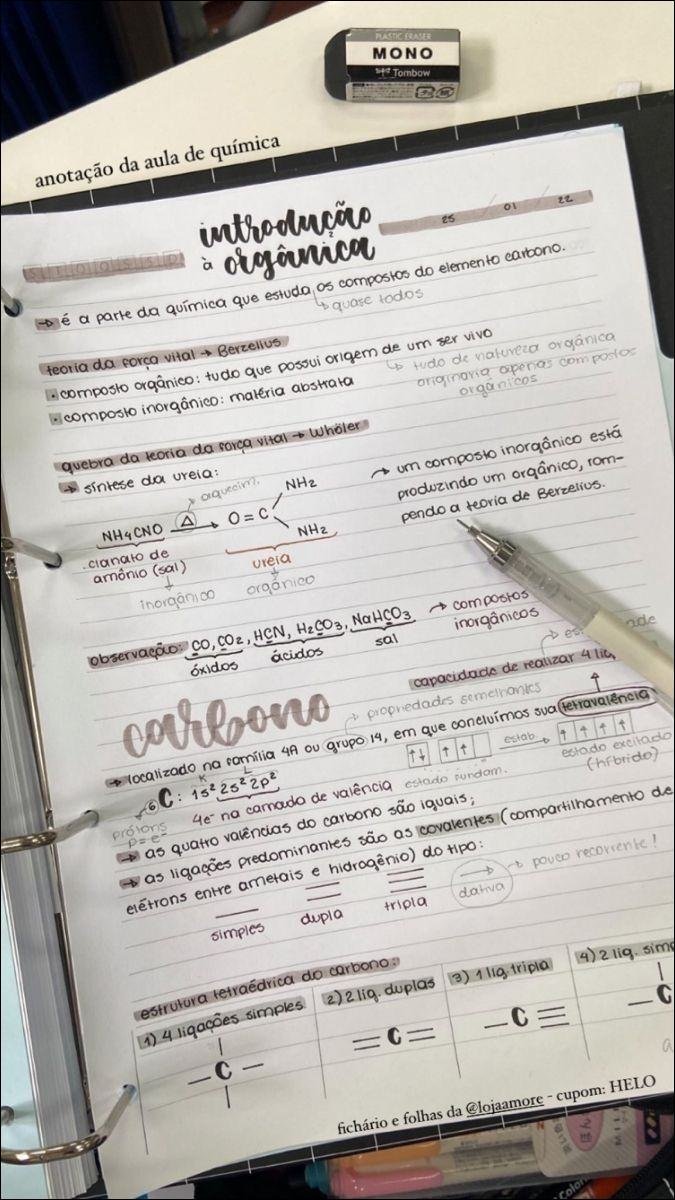 PLASTIC ERASER
MONO
Tombow
anotação da aula de química
introdução
à orgânica
25 / 01 / 22
S T Q Q S S D
→ é a parte da química que estuda os compostos do elemento carbono.
↳ quase todos
teoria da força vital → Berzelius
• composto orgânico: tudo que possui origem de um ser vivo
• composto inorgânico: matéria abstrata
↳ tudo de natureza orgânica
originaria apenas compostos
orgânicos
quebra da teoria da força vital → Whöler
→ síntese da ureia:
arquecim.
NH4CNO Δ→ O=C NH2
NH2
.cianato de
amônio (sal)
↓
inorgânico
ureia
↓
orgânico
→ um composto inorgânico está
produzindo um orgânico, rom-
pendo a teoria de Berzelius.
observação: CO, CO2, HCN, H2CO3, NaHCO3 → compostos
inorgânicos
óxidos ácidos sal
carbono
capacidade de realizar 4 lig
↳ propriedades semelhantes
→ localizado na família 4A ou grupo 14, em que concluímos sua tetravalência
K L
6 C: 1s² 2s² 2p²
prótons
p = e⁻
4e⁻ na camada de valência
↑↓ ↑ ↑ estab. → ↑ ↑ ↑ ↑
estado fundam.
estado excitado
(híbrido)
→ as quatro valências do carbono são iguais;
→ as ligações predominantes são as covalentes (compartilhamento de
elétrons entre ametais e hidrogênio) do tipo:
simples dupla tripla dativa → pouco recorrente!
estrutura tetraédrica do carbono:
1) 4 ligações simples 2) 2 lig. duplas 3) 1 lig. tripla 4) 2 lig. simp
– C – = C = – C ≡ – C
fichário e folhas da @lojaamore - cupom: HELO